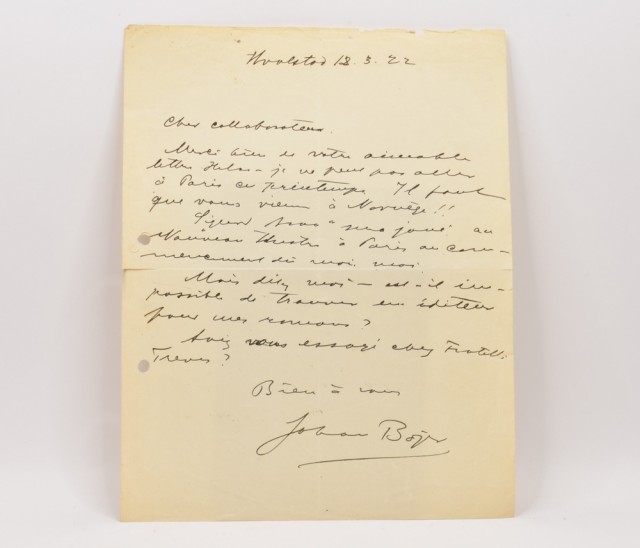 Hvalstad 18.3.22
Cher collaborateur.
Merci bien de votre aimable
lettre Helas – je ne peux pas aller
à Paris ce printemps. Il faut
que vous vienez à Norvège!!
"Sigurd Braa" sera joué au
Nouveau Theatre à Paris au com-
mencement de mois mai
Mais dites moi – est-il im-
possible de trouver un éditeur
pour mes romans?
Avez vous essayé chez Fratelli
Treves?
Bien à vous
Johan Bojer